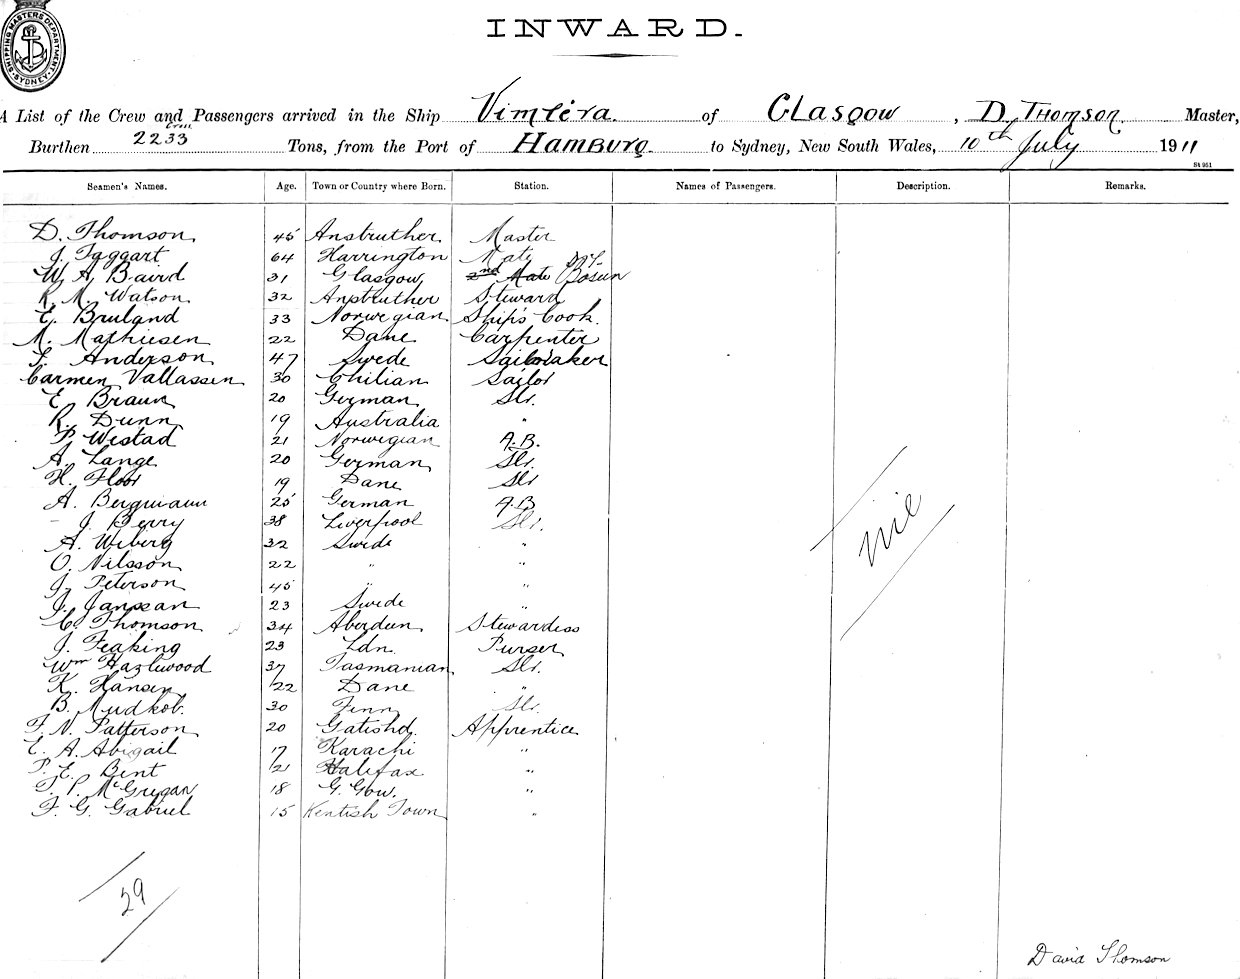 SHIPPING MASTERS DEPARTMENT. SYDNEY
INWARD.
A List of the Crew and Passengers arrived in the Ship Vimeira of GLASGOW, D. THOMSON Master,
Burthen 2233 Tons, from the Port of HAMBURG to Sydney, New South Wales, 10th July 1911
St 951
Seamen's Names. Age. Town or Country where Born. Station. Names of Passengers. Description. Remarks.
D. Thomson 45 Anstruther Master
J. Taggart 64 Harrington Mate
W. A. Baird 31 Glasgow 2nd Mate Bosun
R. M. Watson 32 Anstruther Steward
E. Bruland 33 Norwegian Ship's Cook.
M. Mathiesen 22 Dane Carpenter
F. Anderson 47 Swede Sailmaker
Carmen Vallassen 30 Chilian Sailor
E. Braun 20 German Slr.
R. Dunn 19 Australia "
P. Westad 21 Norwegian A.B.
A. Lange 20 German Slr.
H. Floor 19 Dane Slr
A. Bergmann 25 German A.B
J. Berry 38 Liverpool Slr.
A. Wiberg 32 Swede "
O. Nilsson 22 " "
J. Peterson 45 " "
J. Janssan 23 Swede "
C. Thomson 34 Aberdeen Stewardess
J. Feaking 23 Ldn. Purser
Wm Hazlewood 37 Tasmanian Slr.
K. Hansen 22 Dane "
B. Mudkob. 30 Finn Slr.
F. N. Patterson 20 Gatishd. Apprentice
E. A. Abigail 17 Karachi "
P. E. Bent 21 Halifax "
T. P. McGregan 18 G. Gow. "
F. G. Gabriel 15 Kentish Town "
nil
29
David Thomson